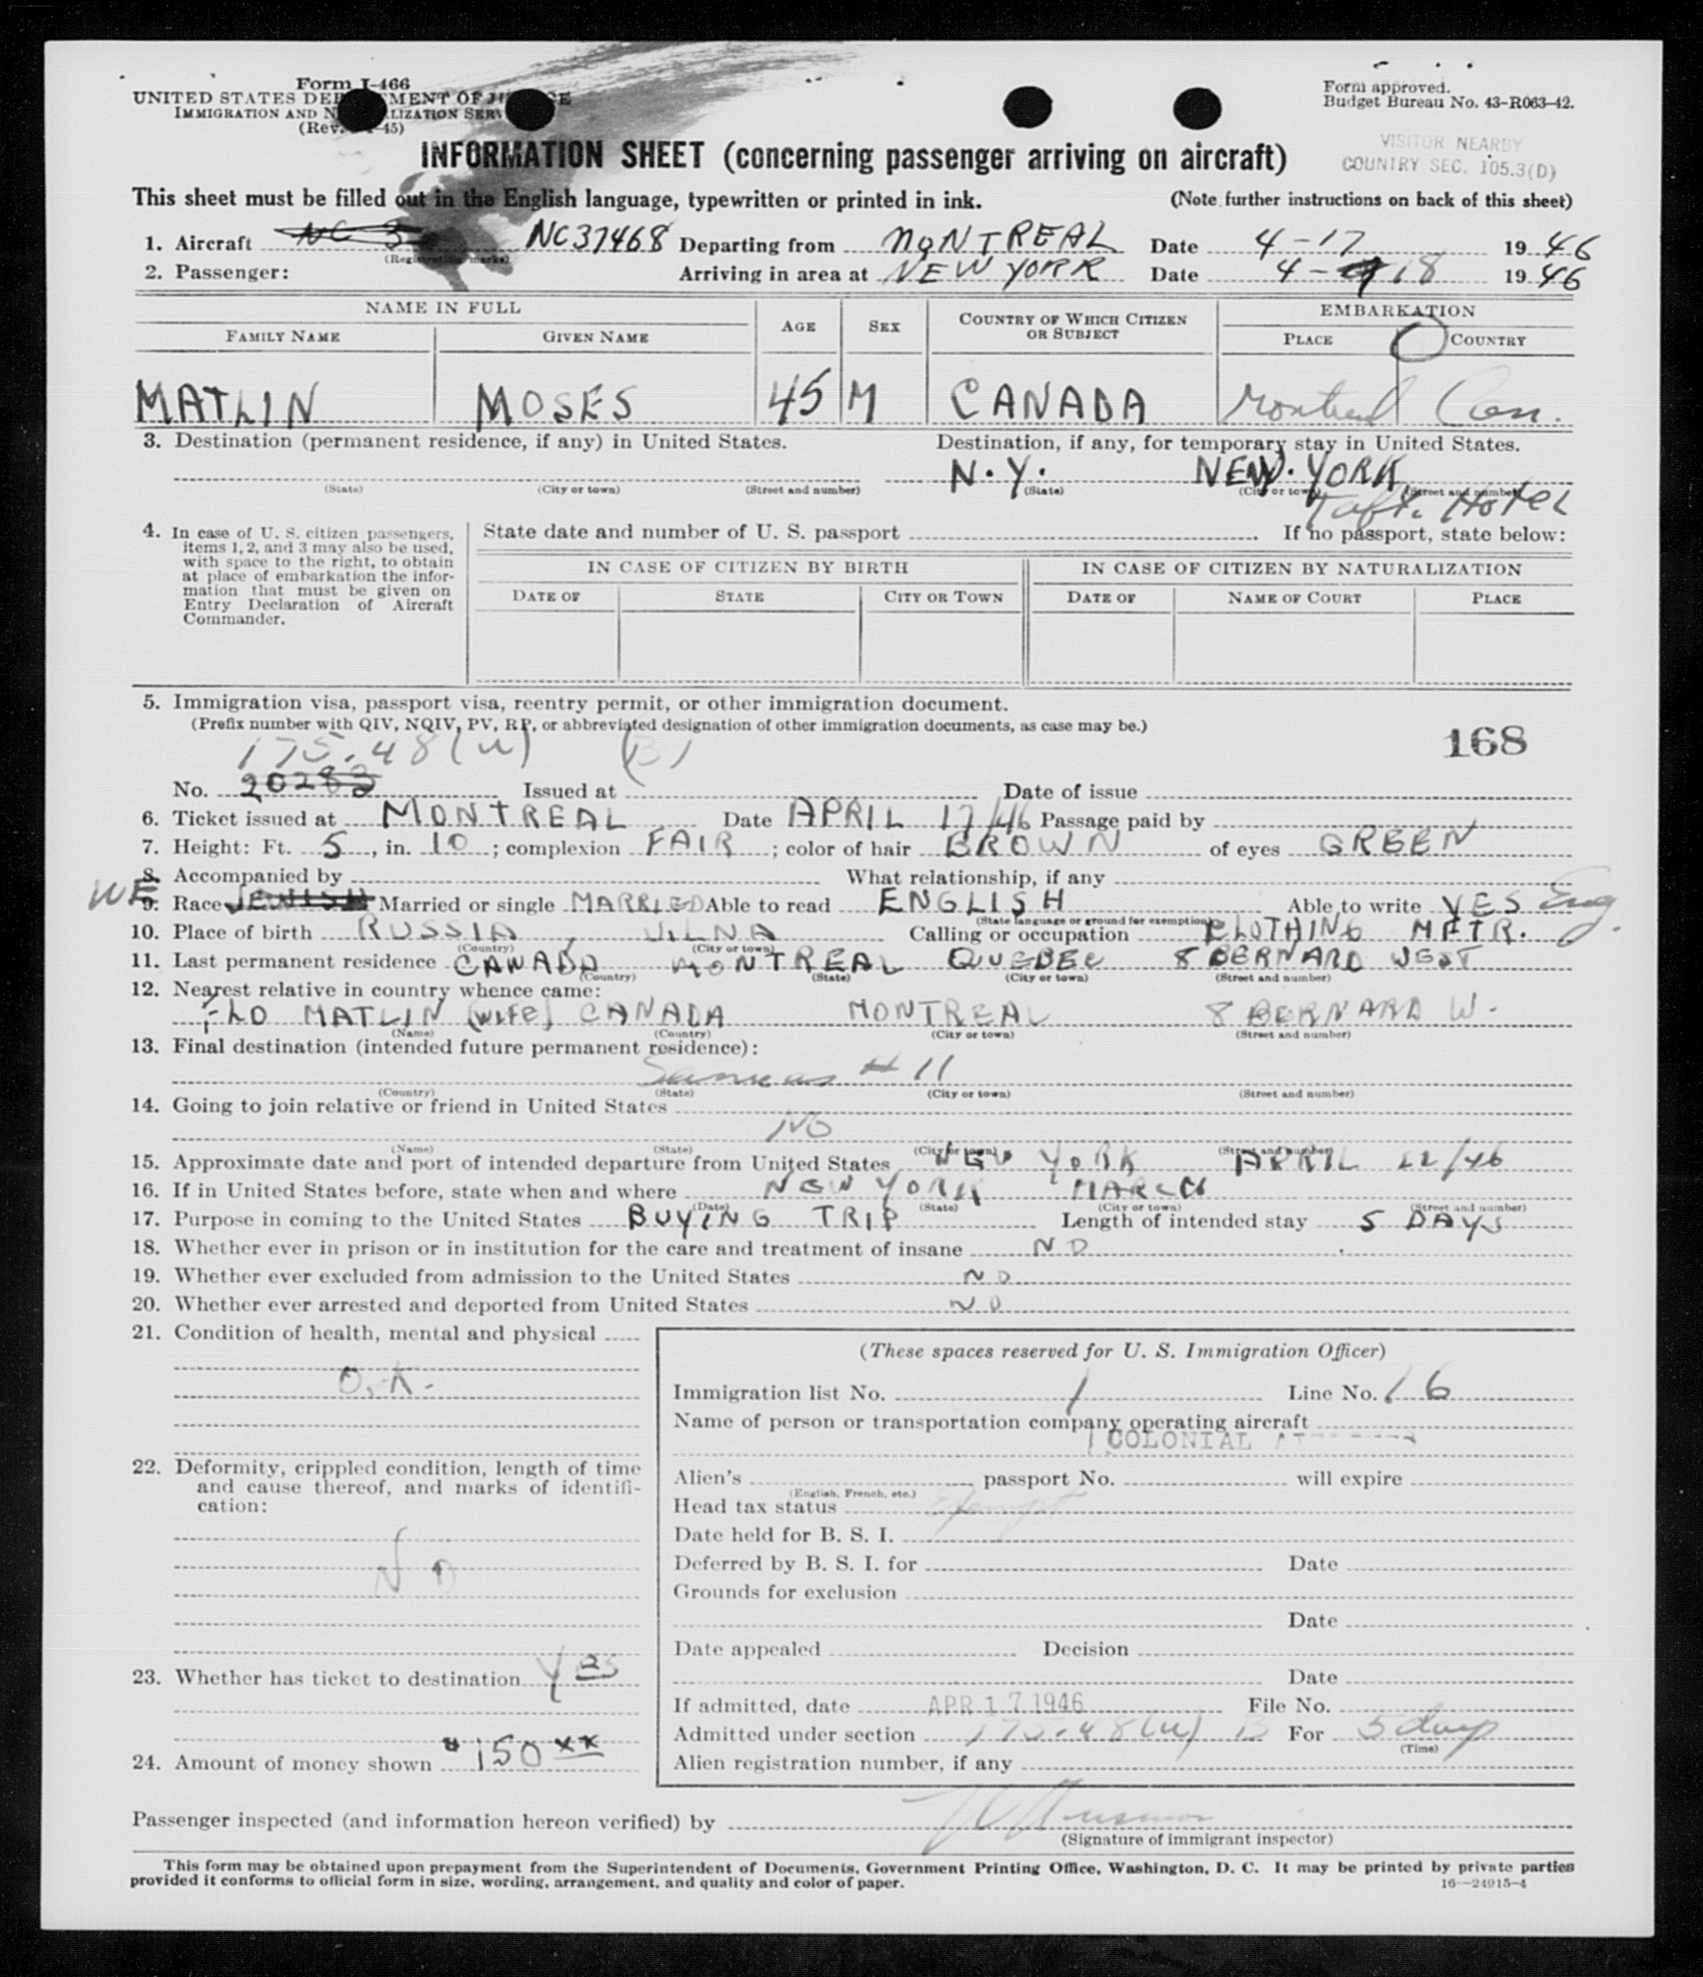 Form I-466
UNITED STATES DEPARTMENT OF JUSTICE
IMMIGRATION AND NATURALIZATION SERVICE
(Rev. 45)
Form approved.
Budget Bureau No. 43-R063-42.
VISITOR NEARBY
COUNTRY SEC. 105.3(D)
INFORMATION SHEET (concerning passenger arriving on aircraft)
This sheet must be filled out in the English language, typewritten or printed in ink. (Note further instructions on back of this sheet)
1. Aircraft NC 3 NC37468 Departing from MONTREAL Date 4-17 1946
(Registration marks)
2. Passenger: Arriving in area at NEW YORK Date 4-18 1946
NAME IN FULL AGE SEX COUNTRY OF WHICH CITIZEN OR SUBJECT EMBARKATION
FAMILY NAME GIVEN NAME PLACE COUNTRY
MATLIN MOSES 45 M CANADA Montreal Can.
3. Destination (permanent residence, if any) in United States. Destination, if any, for temporary stay in United States.
N.Y. NEW. YORK
(State) (City or town) (Street and number) (State) (City or town) (Street and number)
Taft. Hotel
4. In case of U. S. citizen passengers, items 1, 2, and 3 may also be used, with space to the right, to obtain at place of embarkation the information that must be given on Entry Declaration of Aircraft Commander.
State date and number of U. S. passport If no passport, state below:
IN CASE OF CITIZEN BY BIRTH IN CASE OF CITIZEN BY NATURALIZATION
DATE OF STATE CITY OR TOWN DATE OF NAME OF COURT PLACE
5. Immigration visa, passport visa, reentry permit, or other immigration document.
(Prefix number with QIV, NQIV, PV, RP, or abbreviated designation of other immigration documents, as case may be.)
168
175.48(u) (B)
No. 20283 Issued at Date of issue
6. Ticket issued at MONTREAL Date APRIL 17/46 Passage paid by
7. Height: Ft. 5, in. 10; complexion FAIR; color of hair BROWN of eyes GREEN
8. Accompanied by What relationship, if any
WE
9. Race JEWISH Married or single MARRIED Able to read ENGLISH Able to write YES Eng.
(State language or ground for exemption)
10. Place of birth RUSSIA, VILNA Calling or occupation CLOTHING MFTR.
(Country) (City or town)
11. Last permanent residence CANADA MONTREAL QUEBEC 8 BERNARD WEST
(Country) (State) (City or town) (Street and number)
12. Nearest relative in country whence came:
FLO MATLIN (WIFE) CANADA MONTREAL 8 BERNARD W.
(Name) (Country) (City or town) (Street and number)
13. Final destination (intended future permanent residence):
# 11
(Country) (State) (City or town) (Street and number)
14. Going to join relative or friend in United States
NO
(Name) (State) (City or town) (Street and number)
15. Approximate date and port of intended departure from United States NEW YORK APRIL 22/46
16. If in United States before, state when and where NEW YORK MARCH
(Date) (State) (City or town) (Street and number)
17. Purpose in coming to the United States BUYING TRIP Length of intended stay 5 DAYS
18. Whether ever in prison or in institution for the care and treatment of insane NO
19. Whether ever excluded from admission to the United States NO
20. Whether ever arrested and deported from United States NO
21. Condition of health, mental and physical
O.K.
22. Deformity, crippled condition, length of time and cause thereof, and marks of identification:
NO
23. Whether has ticket to destination Yes
24. Amount of money shown $150 xx
(These spaces reserved for U. S. Immigration Officer)
Immigration list No. 1 Line No. 16
Name of person or transportation company operating aircraft
COLONIAL
Alien's passport No. will expire
(English, French, etc.)
Head tax status Exempt
Date held for B. S. I.
Deferred by B. S. I. for Date
Grounds for exclusion
Date
Date appealed Decision
Date
If admitted, date APR 17 1946 File No.
Admitted under section 175.48(u) B For 5 days
(Time)
Alien registration number, if any
Passenger inspected (and information hereon verified) by
(Signature of immigrant inspector)
This form may be obtained upon prepayment from the Superintendent of Documents, Government Printing Office, Washington, D. C. It may be printed by private parties
provided it conforms to official form in size, wording, arrangement, and quality and color of paper. 16—24915-4